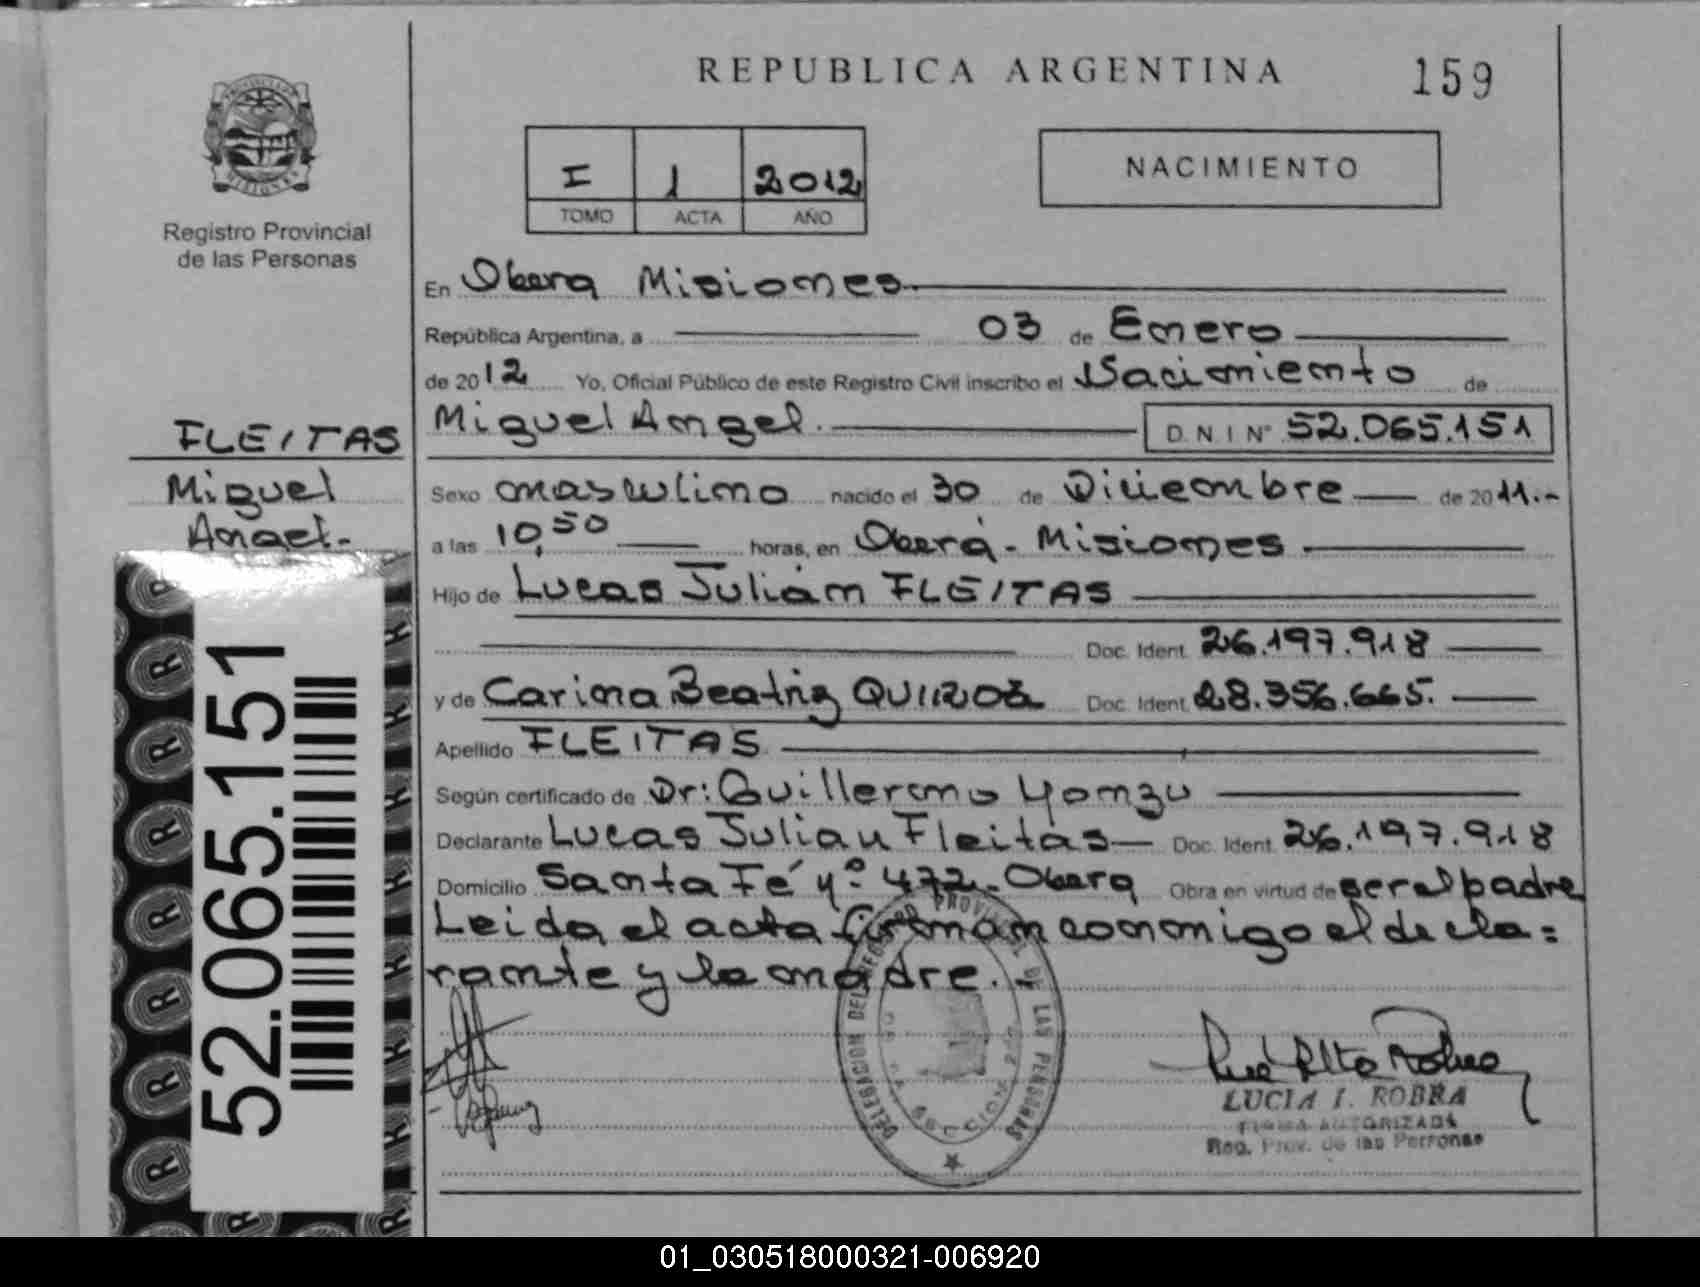 REPUBLICA ARGENTINA
159
PROVINCIA DE MISIONES
Registro Provincial
de las Personas
I 1 2012
TOMO ACTA AÑO
NACIMIENTO
En Obera Misiones.
República Argentina, a 03 de Enero
de 2012 Yo, Oficial Público de este Registro Civil inscribo el Nacimiento de
Miguel Angel. D.N.I Nº 52.065.151
FLEITAS
Miguel
Angel.-
Sexo masculino nacido el 30 de Diciembre de 2011.-
a las 10,50 horas, en Oberá - Misiones
Hijo de Lucas Julián FLEITAS
Doc. Ident. 26.197.918
y de Carina Beatriz QUIROZ Doc. Ident. 28.356.665.
Apellido FLEITAS
Según certificado de Dr: Guillermo Yonzu
Declarante Lucas Julian Fleitas Doc. Ident. 26.197.918
Domicilio Santa Fé nº 472. Obera Obra en virtud de ser el padre
Leida el acta firman conmigo el decla=
rante y la madre.-
52.065.151
DELEGACION DEL REGISTRO PROVINCIAL DE LAS PERSONAS
LUCIA I. ROBRA
FIRMA AUTORIZADA
Reg. Prov. de las Personas
01_030518000321-006920